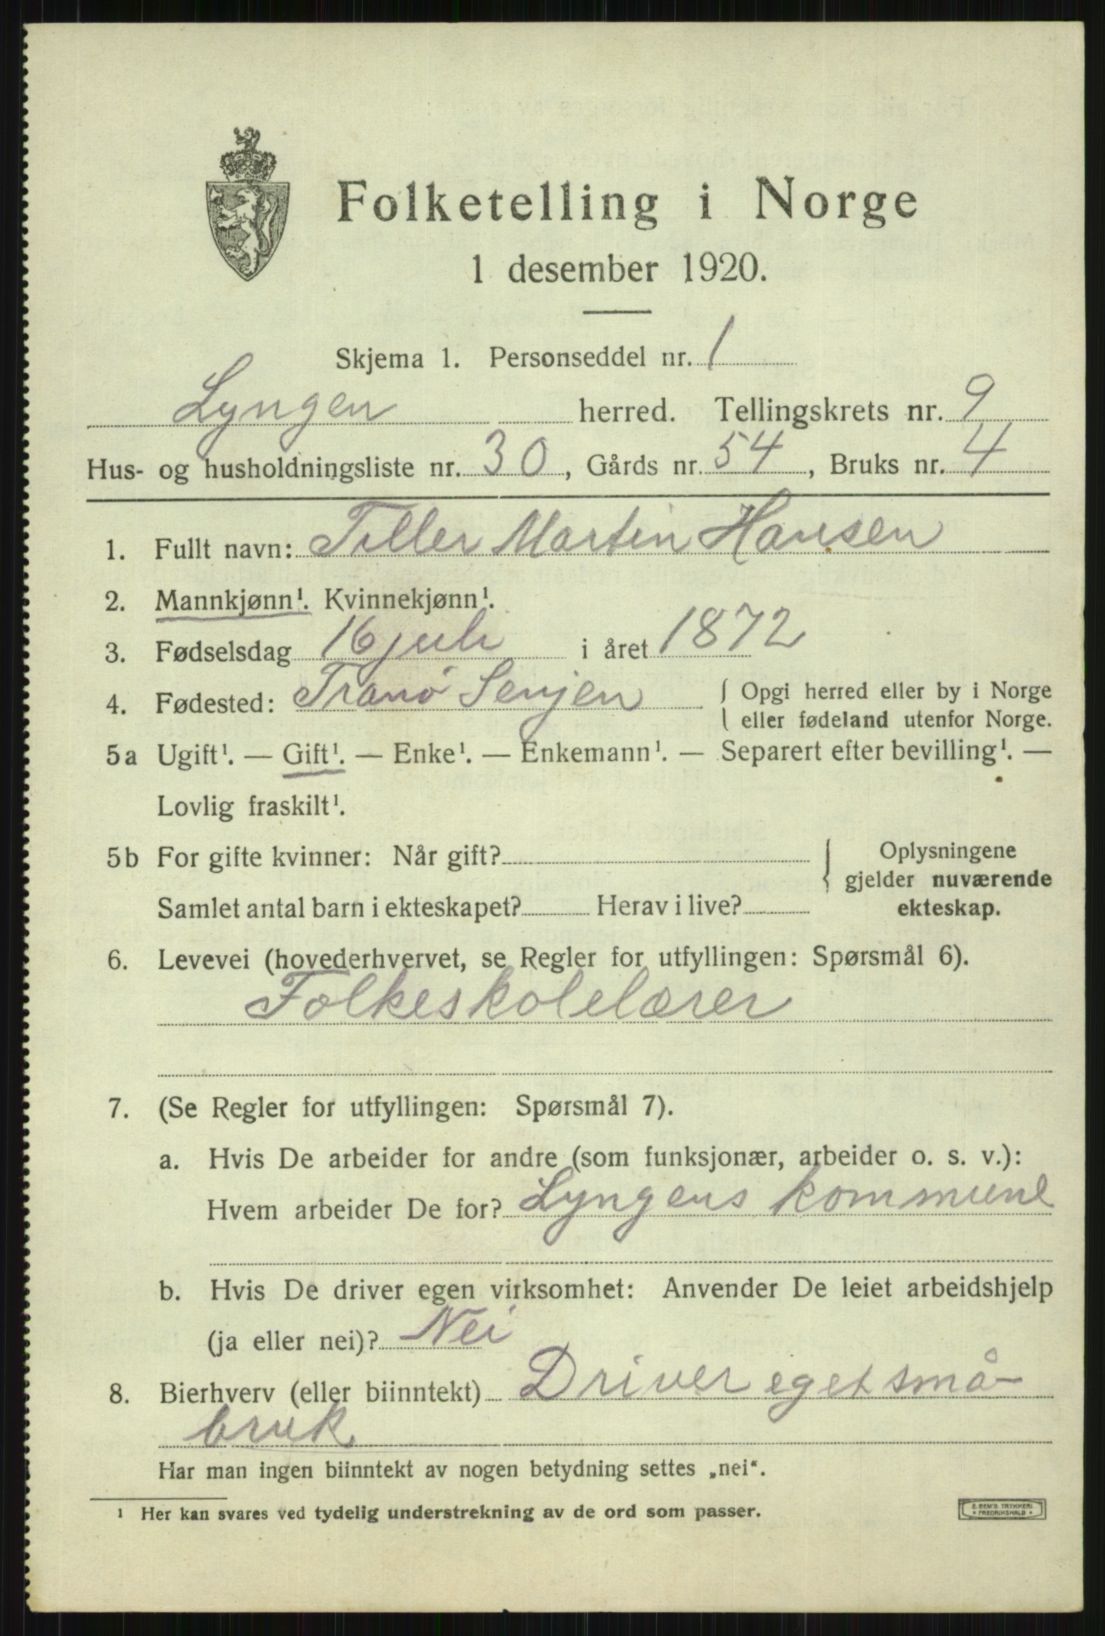 Folketelling i Norge
1 desember 1920.
Skjema 1. Personseddel nr. 1
Lyngen herred. Tellingskrets nr. 9
Hus- og husholdningsliste nr. 30, Gårds nr. 54, Bruks nr. 4
1. Fullt navn: Tiller Martin Hansen
2. Mannkjønn¹. Kvinnekjønn¹.
3. Fødselsdag 16 juli i året 1872
4. Fødested: Tranø Senjen { Opgi herred eller by i Norge
eller fødeland utenfor Norge.
5a Ugift¹. — Gift¹. — Enke¹. — Enkemann¹. — Separert efter bevilling¹. —
Lovlig fraskilt¹.
5b For gifte kvinner: Når gift? } Oplysningene
gjelder nuværende
Samlet antal barn i ekteskapet? Herav i live? ekteskap.
6. Levevei (hovederhvervet, se Regler for utfyllingen: Spørsmål 6).
Folkeskolelærer
7. (Se Regler for utfyllingen: Spørsmål 7).
a. Hvis De arbeider for andre (som funksjonær, arbeider o. s. v.):
Hvem arbeider De for? Lyngens kommune
b. Hvis De driver egen virksomhet: Anvender De leiet arbeidshjelp
(ja eller nei)? Nei
8. Bierhverv (eller biinntekt) Driver eget små-
bruk
Har man ingen biinntekt av nogen betydning settes „nei“.
¹ Her kan svares ved tydelig understrekning av de ord som passer.